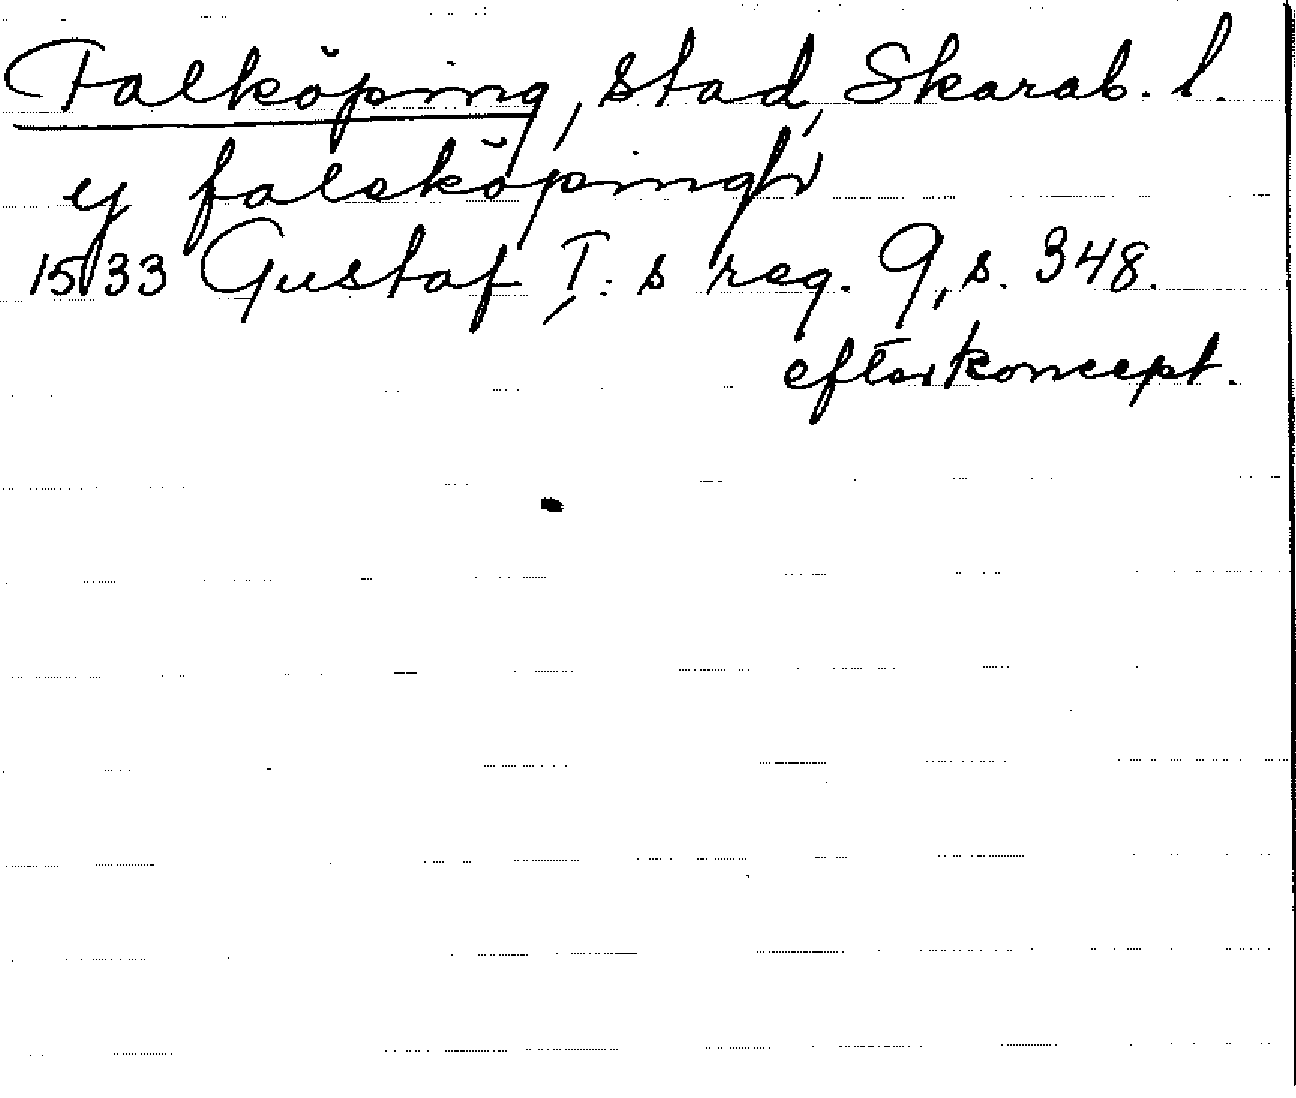 Falköping, stad, Skarab. l.
y faleköpingh
1533 Gustaf I: s reg. 9, s. 348.
efter koncept.